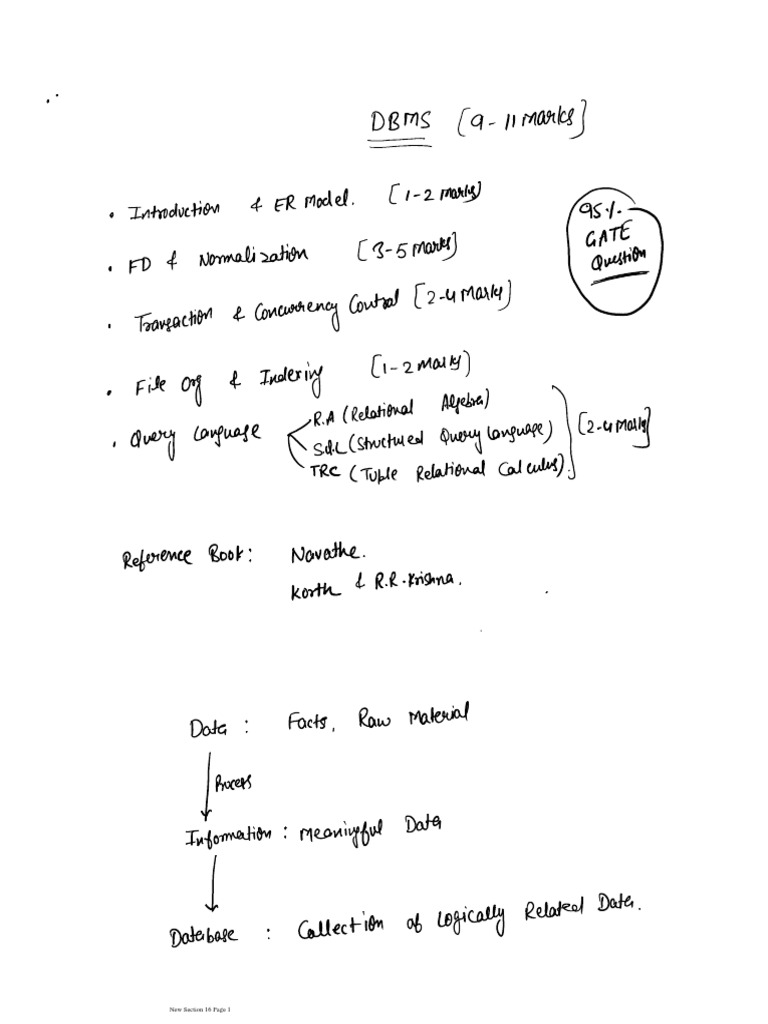 DBMS [9-11 marks]
• Introduction & ER Model. [1-2 marks]
95% GATE Question
• FD & Normalization [3-5 marks]
• Transaction & Concurrency Control [2-4 Marks]
• File Org & Indexing [1-2 Marks]
• Query Language
R.A (Relational Algebra)
SQL (Structured Query Language)
TRC (Tuple Relational Calculus).
[2-4 Marks]
Reference Book: Navathe.
Korth & R.R-Krishna.
Data: Facts, Raw Material
Process
Information: Meaningful Data
Database: Collection of Logically Related Data.
New Section 16 Page 1